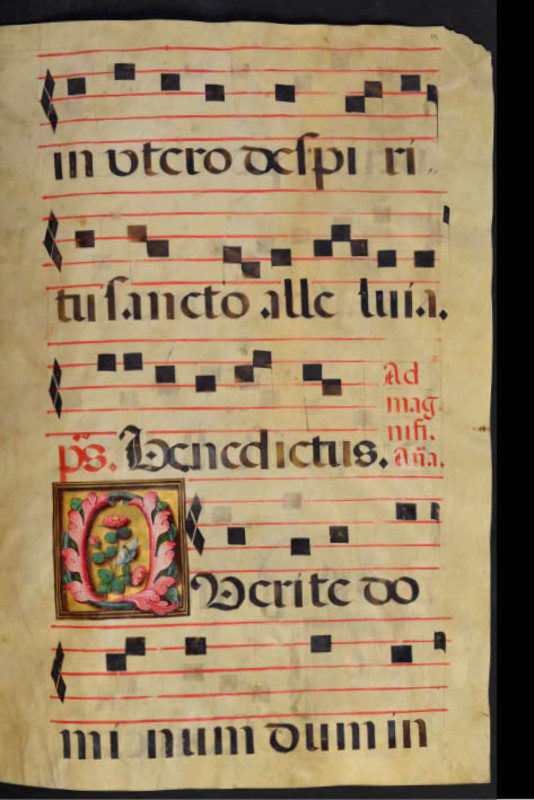 in vtero de spi ri
tu sancto alle luia.
Ad
mag
nifi.
aña.
ps. Benedictus.
Q Verite do
mi num dum in